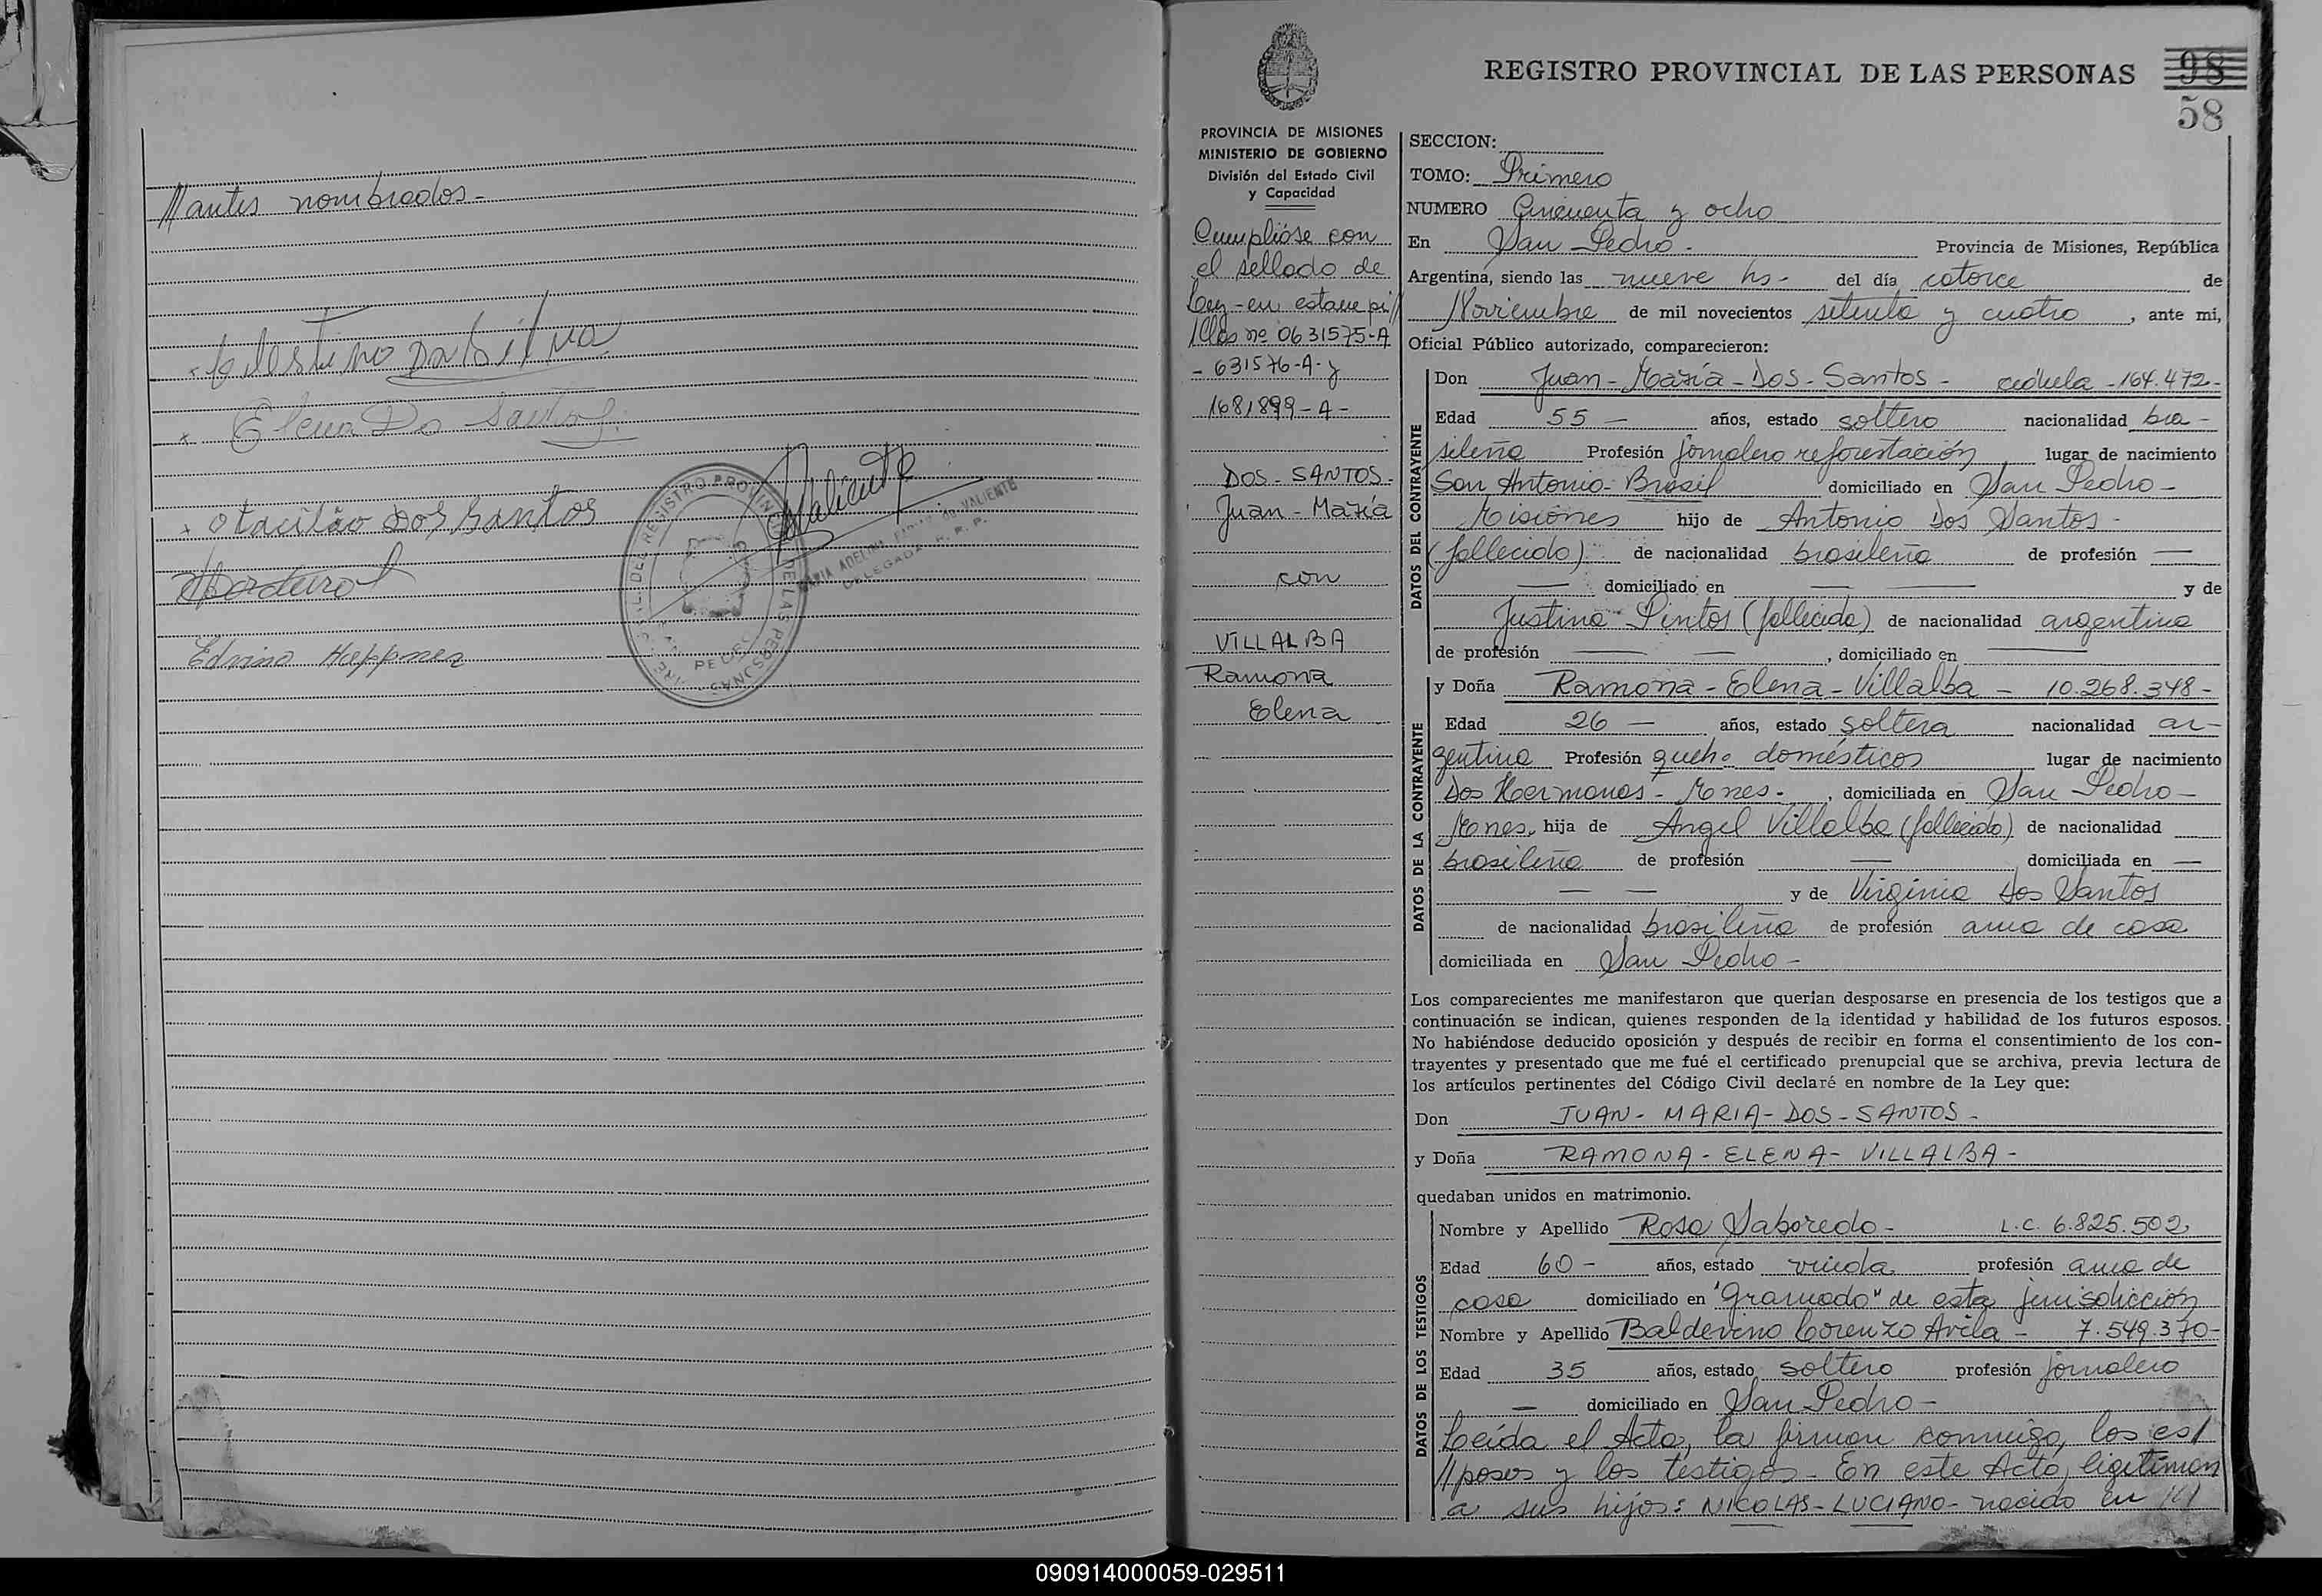 //antes nombrados.-
Celestino Da Silva
Elena Do Santos
Otacilão Dos Santos
Edvino Heppner
REGISTRO PROVINCIAL DE LAS PERSONAS
98
58
PROVINCIA DE MISIONES
MINISTERIO DE GOBIERNO
División del Estado Civil
y Capacidad
Cumplióse con
el sellado de
Ley - en estampi//
//llas nº 0631575-A
- 631576-A- y
1681899-A-
DOS-SANTOS-
Juan-María
con
VILLALBA
Ramona
Elena
SECCION:
TOMO: Primero
NUMERO Cincuenta y ocho
En San Pedro - Provincia de Misiones, República
Argentina, siendo las nueve hs- del día catorce de
Noviembre de mil novecientos setenta y cuatro, ante mí,
Oficial Público autorizado, comparecieron:
DATOS DEL CONTRAYENTE
Don Juan-María-Dos-Santos- cédula -164.472-
Edad 55 - años, estado soltero nacionalidad bra-
sileña Profesión jornalero reforestación lugar de nacimiento
San Antonio-Brasil domiciliado en San Pedro-
Misiones hijo de Antonio Dos Santos-
(fallecido) de nacionalidad brasileña de profesión —
— domiciliado en — — y de
Justina Pintos (fallecida) de nacionalidad argentina
de profesión — —, domiciliado en —
DATOS DE LA CONTRAYENTE
y Doña Ramona-Elena-Villalba - 10.268.348-
Edad 26 - años, estado soltera nacionalidad ar-
gentina Profesión queh. domésticos lugar de nacimiento
Dos Hermanas - Mnes-, domiciliada en San Pedro-
Mnes. hija de Angel Villalba (fallecido) de nacionalidad
brasileña de profesión — domiciliada en —
— — y de Virginia Dos Santos
de nacionalidad brasileña de profesión ama de casa
domiciliada en San Pedro-
Los comparecientes me manifestaron que querían desposarse en presencia de los testigos que a
continuación se indican, quienes responden de la identidad y habilidad de los futuros esposos.
No habiéndose deducido oposición y después de recibir en forma el consentimiento de los con-
trayentes y presentado que me fué el certificado prenupcial que se archiva, previa lectura de
los artículos pertinentes del Código Civil declaré en nombre de la Ley que:
Don JUAN-MARIA-DOS-SANTOS-
y Doña RAMONA-ELENA-VILLALBA-
quedaban unidos en matrimonio.
DATOS DE LOS TESTIGOS
Nombre y Apellido Rosa Saboredo- L.C. 6.825.502,
Edad 60- años, estado viuda profesión ama de
casa domiciliado en "Gramado" de esta jurisdicción
Nombre y Apellido Baldevino Lorenzo Avila - 7.549.370-
Edad 35 años, estado soltero profesión jornalero
— domiciliado en San Pedro-
Leída el Acta, la firman conmigo, los es/
//posos y los testigos.- En este Acto, ligitiman
a sus hijos: NICOLAS-LUCIANO- nacido en
090914000059-029511